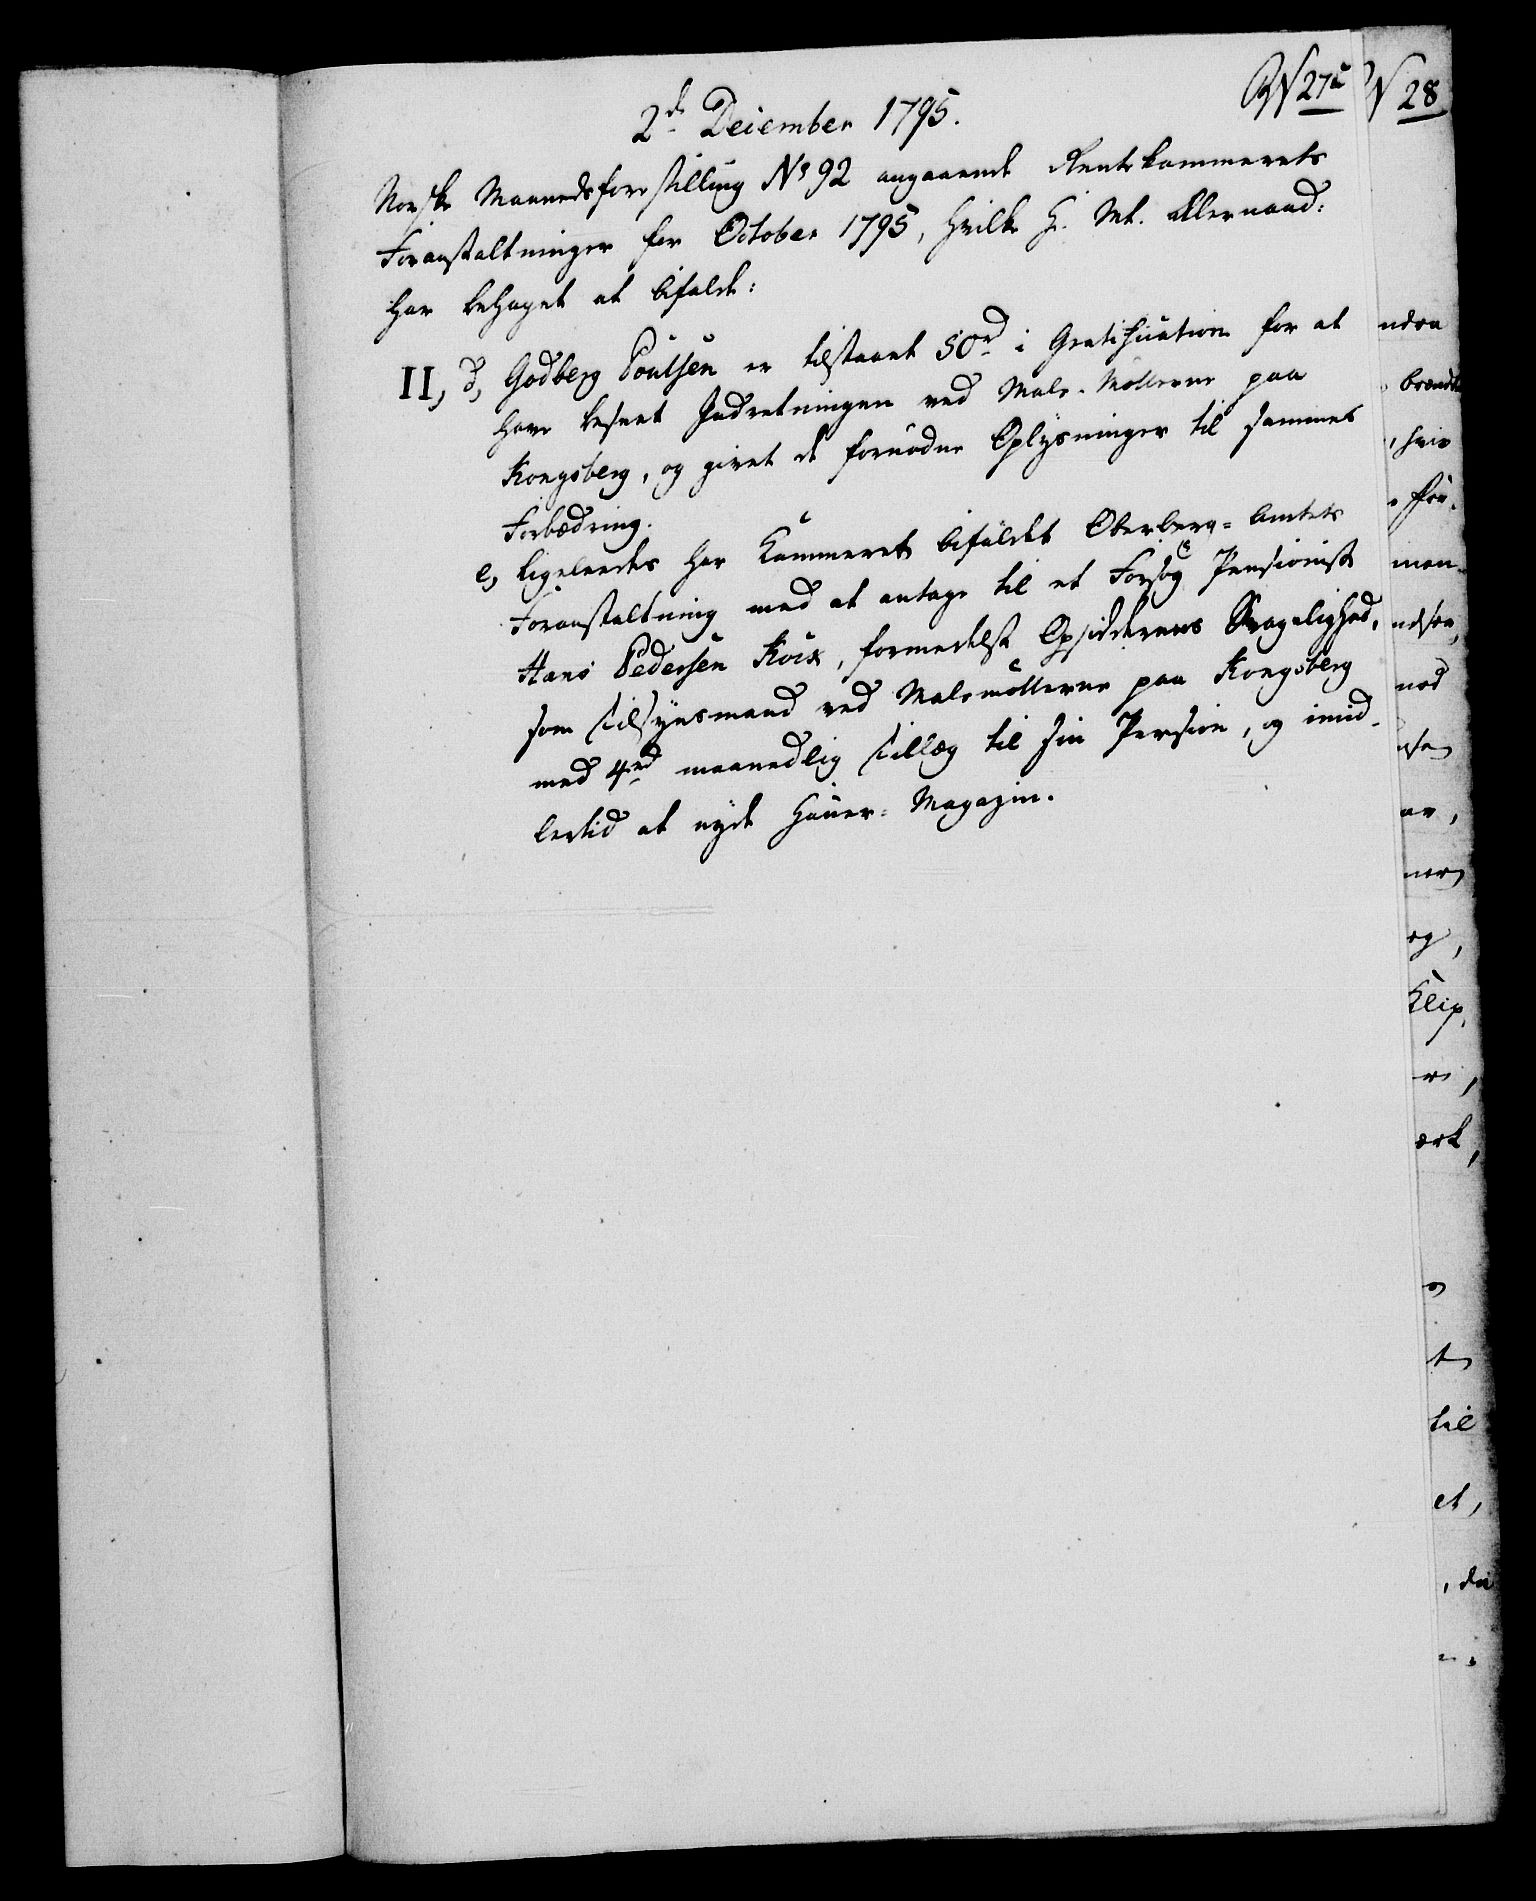 N 27a
N 28
2d December 1795.
Norske Maanedsforestilling No 92 angaaende Rentekammerets
Foranstaltninger for October 1795, hvilke H. Mt. allernaad:
har behaget at bifalde:
II, d, Godberg Poulsen er tilstaaet 50rd i Gratification for at
have beseet Indretningen ved Male-Møllerne paa
Kongsberg, og givet de fornødne Oplysninger til sammes
Forbedring.
e, Ligeledes har Kammeret bifaldet Oberberg-Amtets
Foranstaltning med at antage til et Forsøg Pensionist
Hans Pedersen, formedelst Opsidderens Svagelighed,
som Tilsynsmand ved Malemøllerne paa Kongsberg
med 4rd maanedlig Tillæg til sin Pension, og imid-
lertid at nyde Hauer-Magazin.